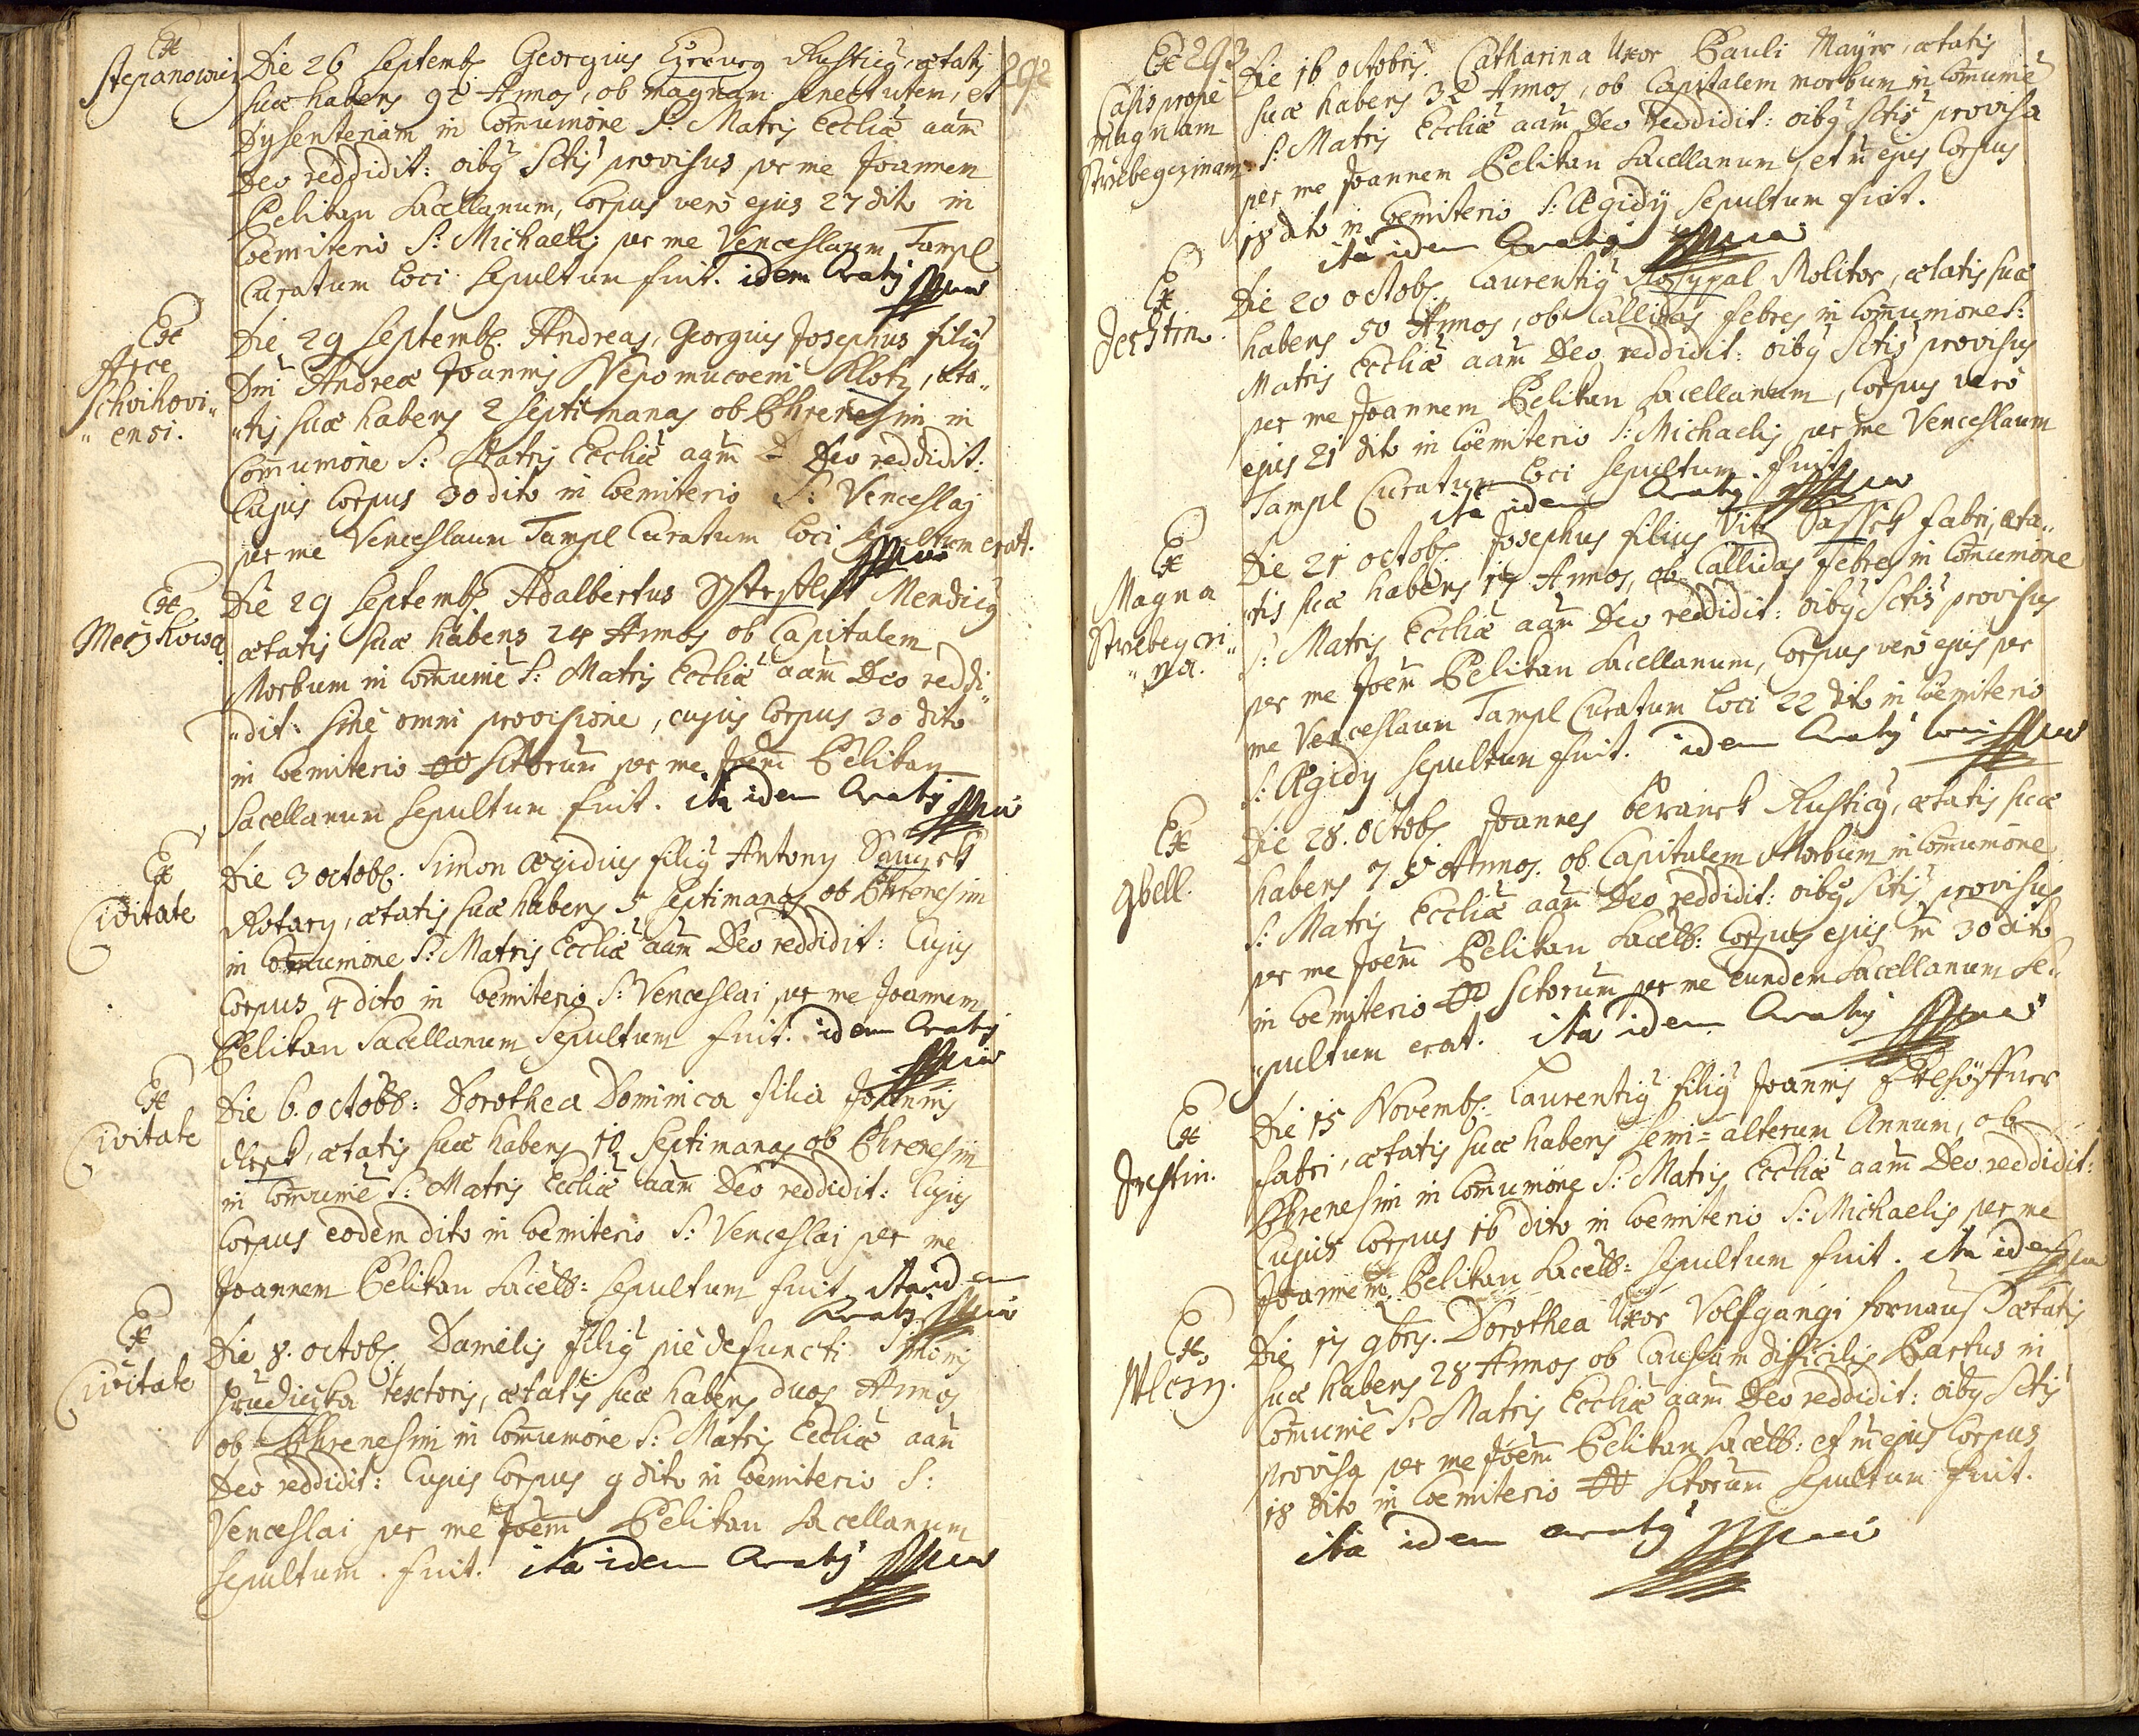 292
Ex
Stepanowicz
Die 26 Septemb. Georgius Rusticq, ætatis
suæ habens 92 Annos, ob magnam senectutem, et
Dysenteriam in Com̄unione S: Matris Eccliæ aām
Deo reddidit: oib9 Sctis provisus per me Joannem
Pelikan Sacellanum, Corpus verò ejus 27 dito in
Cœmiterio S: Michaelis per me Venceslaum Tampl
Curatum loci sepultum fuit. idem Curatus
Ex
Arce
Schvihovi„
„ensi.
Die 29 Septemb. Andreas, Georgius Josephus filiq
Dni Andreæ Joannis Nepomuceni Klotz, æta„
„tis suæ habens 2 septimanas ob Phrenesim in
Com̄unione S: Matris Eccliæ aām Deo reddidit:
Cujus Corpus 30 dito in Cœmiterio S: Venceslaj
per me Venceslaum Tampl Curatum loci sepultum erat.
Ex
Meczkowa
Die 29 Septemb. Adalbertus Mendicq
ætatis suæ habens 24 Annos ob Capitalem
Morbum in Com̄unie S: Matris Eccliæ aām Deo reddi„
„dit: sine omni provisione, cujus Corpus 30 dito
in Cœmiterio OO Sctorum per me Joēm Pelikan
Sacellanum sepultum fuit. ita idem Curatus
Ex
Civitate
Die 3 octob. Simon Ægidius filiq Antony
Rotary, ætatis suæ habens 5 septimanas ob Phrenesim
in Com̄unione S: Matris Eccliæ aām Deo reddidit: Cujus
Corpus 4 dito in Cœmiterio S: Venceslai per me Joannem
Pelikan Sacellanum Sepultum fuit. idem Curatus
Ex
Civitate
Die 6. octobb: Dorothea Dominica filia Joannis
ætatis suæ habens 10 Septimanas ob Phrenesim
in Com̄unie S: Matris Eccliæ aām Deo reddidit: Cujus
Corpus eodem dito in Cœmiterio S: Venceslai per me
Joannem Pelikan Sacell: sepultum fuit. ita idem
Curatus
Ex
Civitate
Die 8. octob. Danielis filiq piè defuncti Simonis
textoris, ætatis suæ habens duos Annos
ob Phrenesim in Com̄unione S: Matris Eccliæ aām
Deo reddidit: Cujus Corpus 9 dito in Cœmiterio S:
Venceslai per me Joēm Pelikan Sacellanum
sepultum fuit. ita idem Curatus
293
Ex
Casis propè
magnam
Strzebeczinam
Die 16 octobris. Catharina Uxor Pauli Mayer, ætatis
suæ habens 32 Annos, ob Capitalem morbum in Com̄unie
S: Matris Eccliæ aām Deo reddidit: oib9 sctis provisa
per me Joannem Pelikan Sacellanum, et in ejus Corpus
18 dito in Cœmiterio S: Ægidÿ sepultum fuit.
ita idem Curatus
Ex
Jerstin.
Die 20 octob. Laurentiq Rossypal Molitor, ætatis suæ
habens 50 Annos, ob Callidas febres in Com̄unione S:
Matris Eccliæ aām Deo reddidit: oib9 Sctis provisus
per me Joannem Pelikan Sacellanum, Corpus verò
ejus 21 dito in Cœmiterio S: Michaelis per me Venceslaum
Tampl Curatum loci sepultum fuit.
ita idem Curatus
Ex
Magna
Strzebeczi„
„na.
Die 21 octob. Josephus filius Viti Sassek fabri, æta„
„tis suæ habens 17 Annos, ob Callidas febres in Com̄unione
S: Matris Eccliæ aām Deo reddidit: oib9 Sctis provisus
per me Joēm Pelikan Sacellanum, Corpus verò ejus per
me Venceslaum Tampl Curatum loci 22 dito in Cœmiterio
S: Ægidy sepultum fuit. idem Curatus loci
Ex
Gbell.
Die 28. octob. Joannes Beranek Rusticq, ætatis suæ
habens 75 Annos. ob Capitalem Morbum in Com̄unione
S: Matris Eccliæ aām Deo reddidit: oib9 Sctis provisus
per me Joēm Pelikan Sacell: Corpus ejus in 30 dito
in Cœmiterio OO Sctorum per me eundem Sacellanum Se„
„pultum erat. ita idem Curatus
Ex
Jrestin.
Die 15 Novemb. Laurentiq filiq Joannis
fabri, ætatis suæ habens semi=alterum Annum, ob
Phrenesim in Com̄unione S: Matris Eccliæ aām Deo reddidit:
Cujus Corpus 16 dito in Cœmiterio S: Michaelis per me
Joannem Pelikan Sacell: sepultum fuit. ita idem
Ex
Wlczy.
Die 17 9bris. Dorothea Uxor Volfgangi Fornaus ætatis
suæ habens 28 Annos ob Causam difficilis Partus in
Com̄unie S: Matris Eccliæ aām Deo reddidit: oib9 Sctis
provisa per me Joēm Pelikan Sacell: et in ejus Corpus
18 dito in Cœmiterio OO Sctorum sepultum fuit.
ita idem Curatus